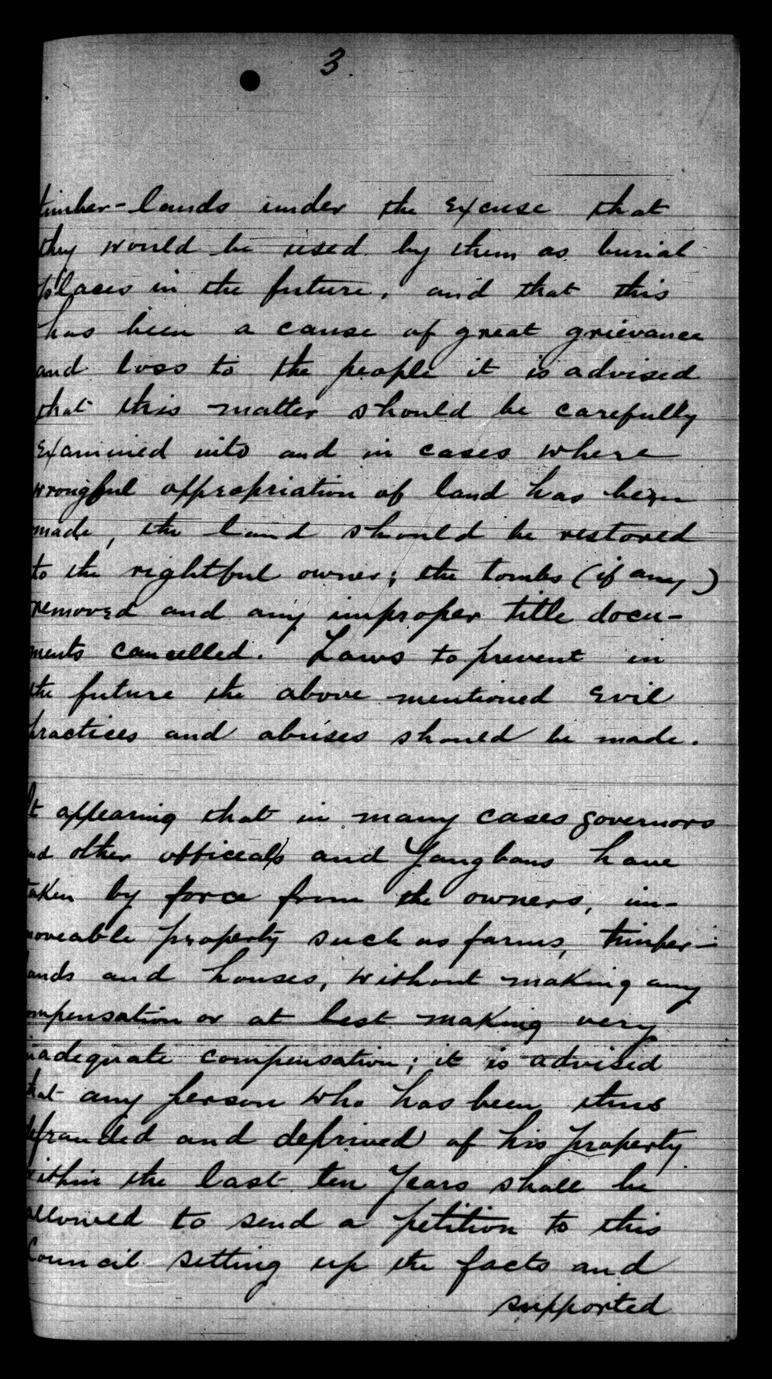 3.
timber-lands under the excuse that
they would be used by them as burial
places in the future, and that this
has been a cause of great grievance
and loss to the people it is advised
that this matter should be carefully
examined into and in cases where
wrongful appropriation of land has been
made, the land should be restored
to the rightful owner; the tombs (if any)
removed and any improper title docu-
ments cancelled. Laws to prevent in
the future the above mentioned evil
practices and abuses should be made.
It appearing that in many cases governors
and other officials and Yangbans have
taken by force from the owners, im-
moveable property such as farms, timber-
lands and houses, without making any
compensation or at best making very
inadequate compensation; it is advised
that any person who has been thus
defrauded and deprived of his property
within the last ten years shall be
allowed to send a petition to this
Council setting up the facts and
supported